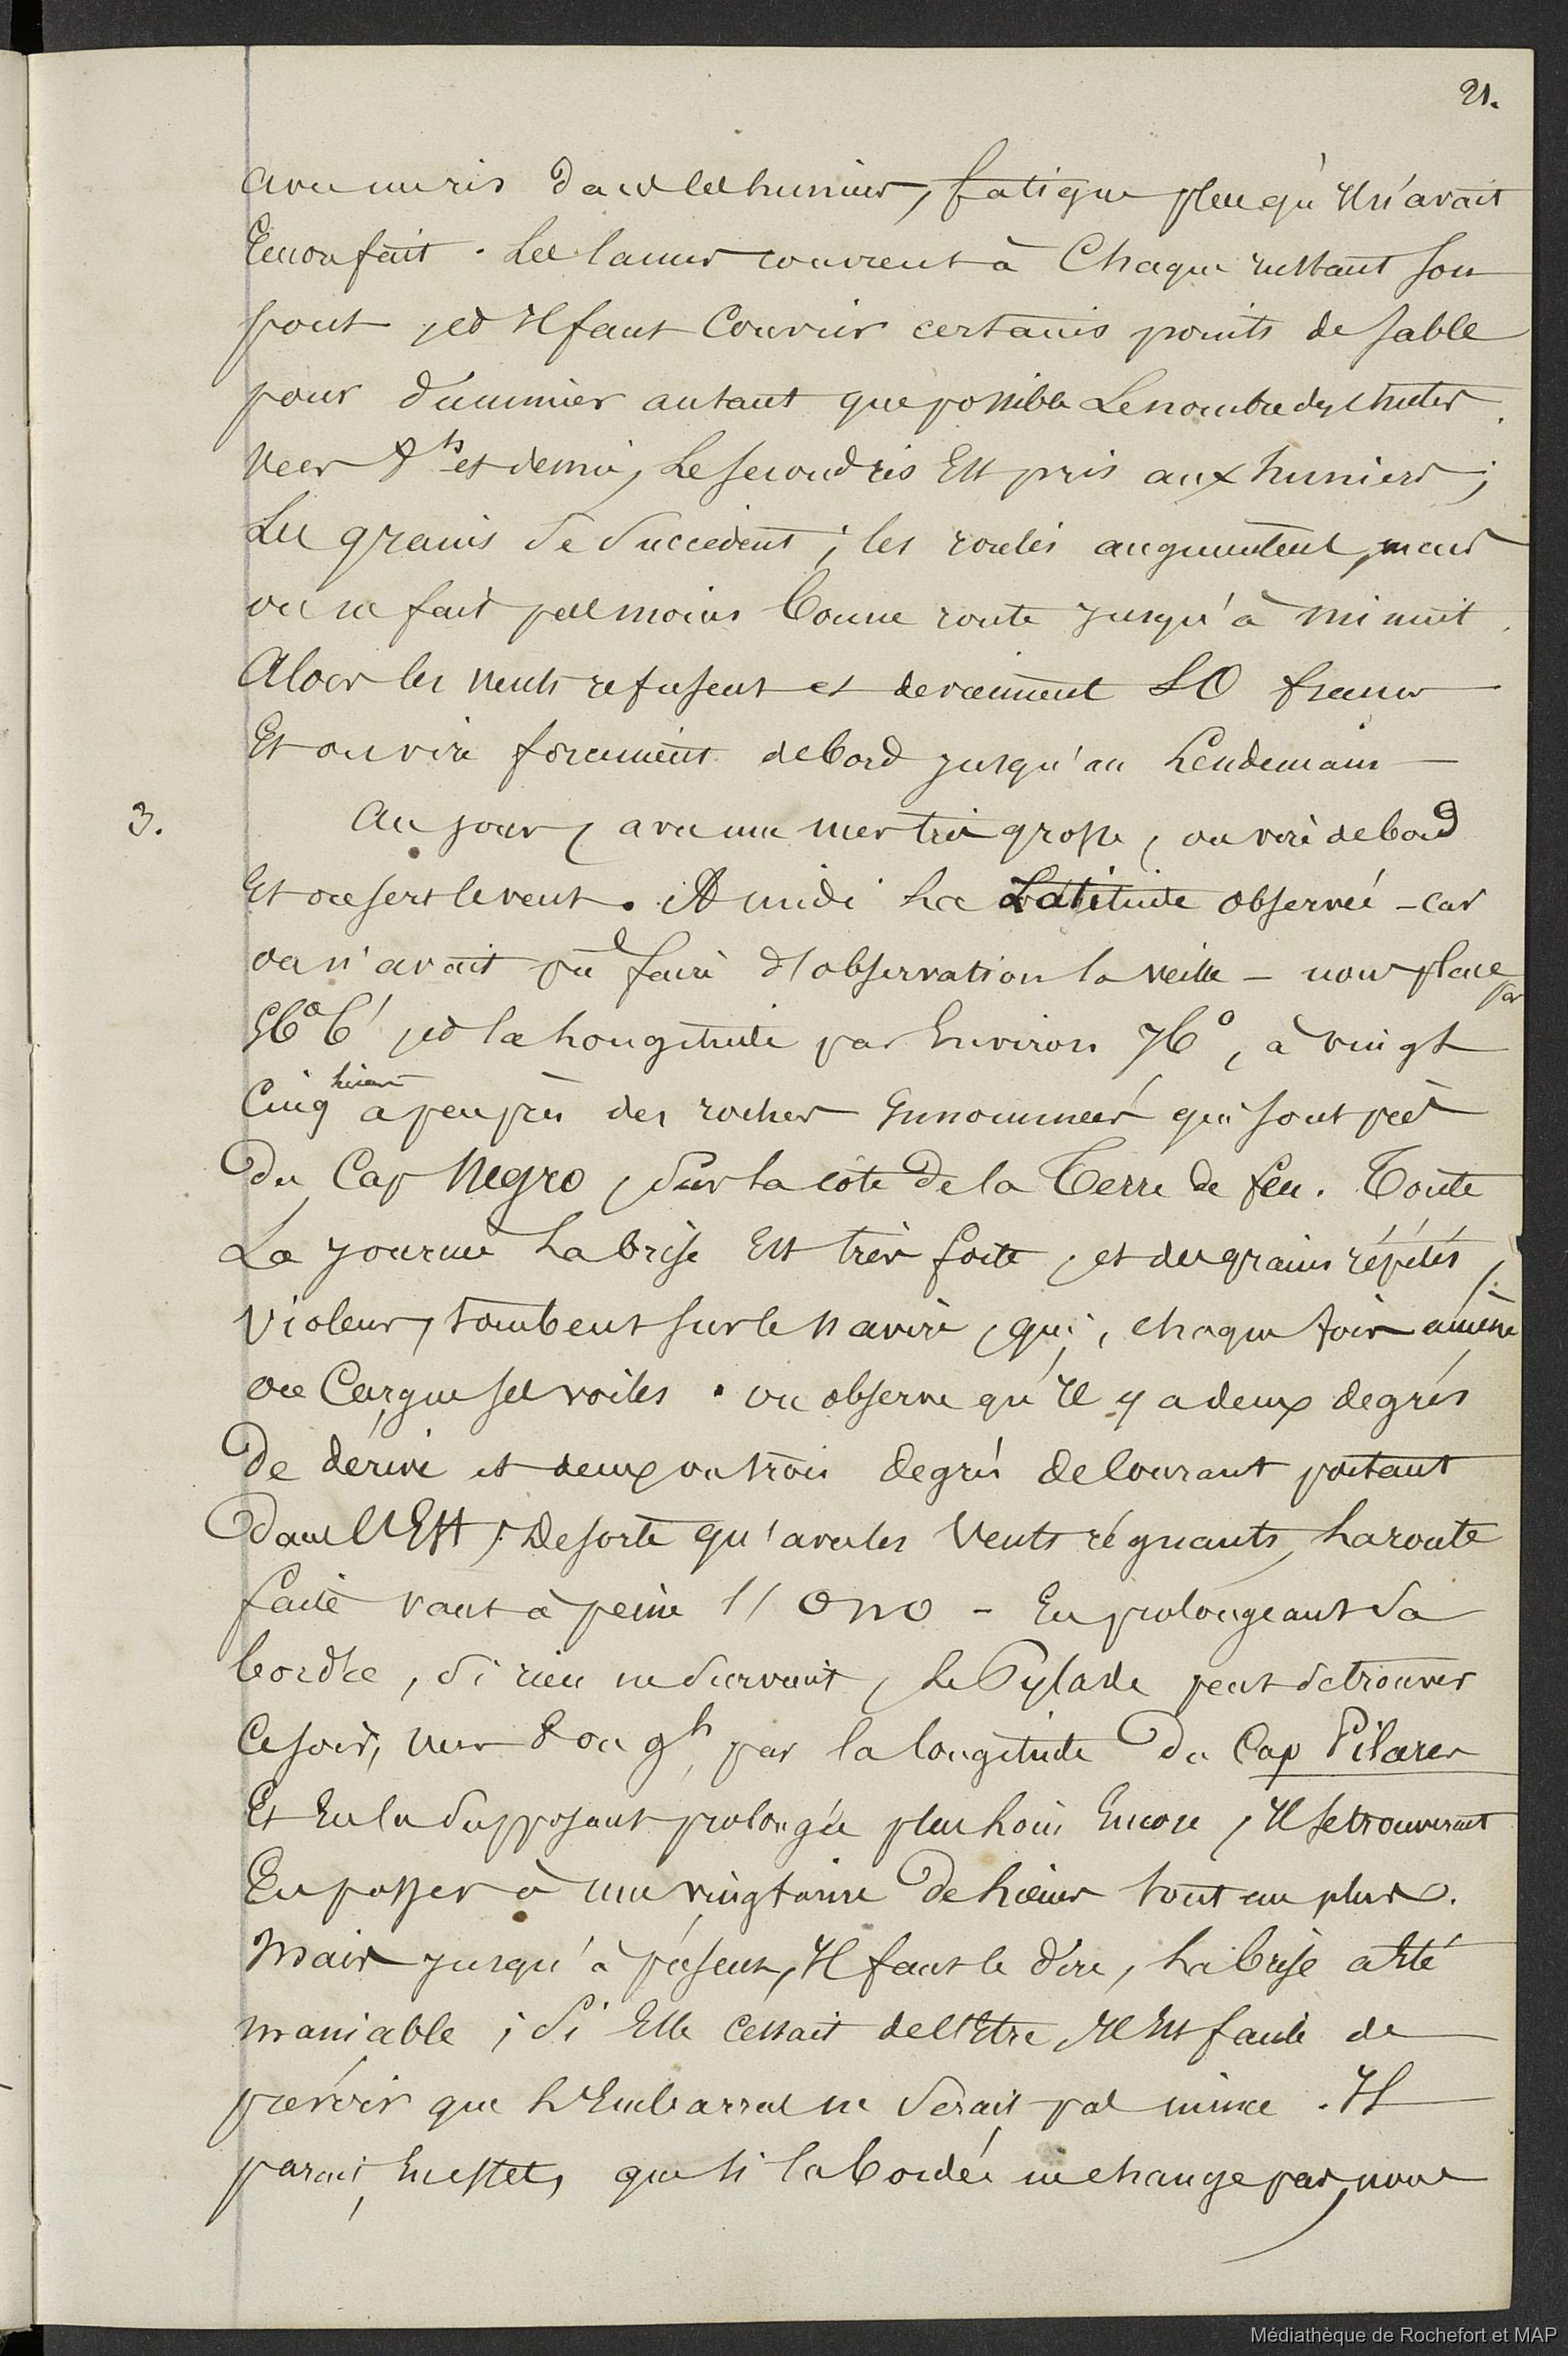 21.
avec un ris dans les huniers, fatigue plus qu'il n'avait
Encore fait. Les lames couvrent à Chaque instant son
pont, et Il faut Couvrir certains points de sable
pour diminuer autant que possible Le nombre des chutes.
Vers 8 hs et demie, Le second ris Est pris aux huniers;
Les grains se succèdent; les roulis augmentent, mais
on ne fait pas moins bonne route jusqu'à minuit.
Alors les vents refusent et deviennent SO francs
Et on vire forcément de bord jusqu'au Lendemain
3. Au jour, avec une mer très grosse, on vire de bord
Et on sert le vent. A midi La Latitude observée - car
on n'avait pu faire d'observation la veille - nous place par
56° 6', et la Longitude par Environ 76°, à vingt
Cinq lieues à peu près des rochers Innommés qui sont près
Du Cap Negro, Sur La côte De la Terre de feu. Toute
La journée La brise Est très forte, et des grains répétés,
Violens, tombent sur le navire, qui, chaque fois amène
ou Cargue ses voiles. On observe qu'Il y a deux degrés
De dérive et deux ou trois degrés de Courant portant
Dans l'Est, De sorte qu'avec les Vents régnants, La route
faite vaut à peine l'ONO - En prolongeant Sa
bordée, Si rien ne Survient, Le Pylade peut Se trouver
Ce soir, vers 8 ou 9 h, par la longitude Du Cap Pilares
Et En la Supposant prolongée plus Loin Encore, Il se trouverait
En passer à une vingtaine De Lieues tout au plus.
Mais jusqu'à présent, Il faut le dire, La brise a Eté
maniable; Si Elle Cessait de l'Etre, Il Est facile de
prévoir que L'Embarras ne Serait pas mince. Il
parait, En effet, que si la bordée ne change pas, nous
Médiathèque de Rochefort et MAP